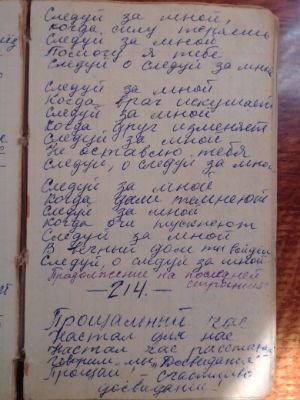 Следуй за мной,
Когда силу теряешь
Следуй за мной
Помогу я тебе
Следуй о следуй за мной
Следуй за мной
Когда враг искушает
Следуй за мной
Когда друг изменяет
Следуй за мной
Не оставлю тебя
Следуй, о следуй за мной
Следуй за мной
Когда дали темнеют
Следуй за мной
Когда очи тускнеют
Следуй за мной
В вечный дом ты войдёшь
Следуй, о следуй за мной
Продолжение на последней
странице
— 214. —
Прощальный час
Настал для нас
Настал час расстаться
Говорим мы, Досвидания
Прощай счастливо
досвидания!